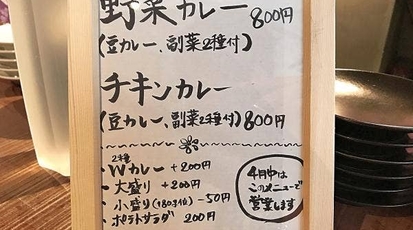 野菜カレー 800円
(豆カレー、副菜2種付)
チキンカレー
(豆カレー、副菜2種付) 800円
2種
・Wカレー +200円
・大盛り +200円
・小盛り(180g位) -50円
・ポテトサラダ 200円
4月中は
このメニューで
営業します